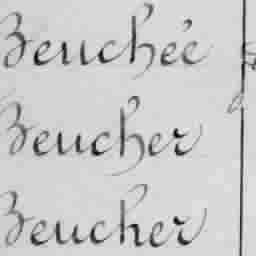 Beuchée
Beucher
Beucher